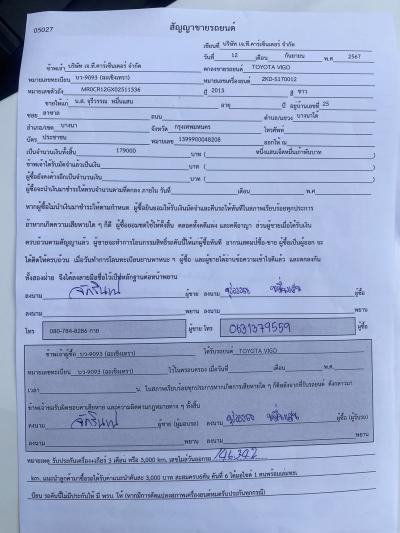 05027
สัญญาขายรถยนต์
เขียนที่ บริษัท เจ.ที.คาร์เซ็นเตอร์ จำกัด
วันที่ 12 เดือน กันยายน พ.ศ 2567
ข้าพเจ้า บริษัท เจ.ที.คาร์เซ็นเตอร์ จำกัด ตกลงขายรถยนต์ TOYOTA VIGO
หมายเลขทะเบียน บว-9093 (ฉะเชิงเทรา) หมายเลขเครื่องยนต์ 2KD-5170012
หมายเลขตัวถัง MR0CR12GX02511336 ปี 2013 สี ขาว
ขายให้แก่ น.ส. จุรีวรรณ หมื่นแสน อายุ ปี อยู่บ้านเลขที่ 25
ซอย ลาซาล ถนน ตำบล/แขวง บางนาใต้
อำเภอ/เขต บางนา จังหวัด กรุงเทพมหนคร โทรศัพท์
บัตร ประชาชน หมายเลข 1399900048208 ออกให้ ณ
เป็นจำนวนเงินทั้งสิ้น 179000 บาท ( หนึ่งแสนเจ็ดหมื่นเก้าพันบาท )
ข้าพเจ้าได้รับมัดจำแล้วเป็นเงิน บาท ( )
ผู้ซื้อยังคงค้างอีกเป็นจำนวนเงิน บาท ( )
ผู้ซื้อจะนำเงินมาชำระให้ครบจำนวนตามที่ตกลง ภายใน วันที่ เดือน พ.ศ
หากผู้ซื้อไม่นำเงินมาชำระให้ตามกำหนด ผู้ซื้อยินยอมให้ริบเงินมัดจำและคืนรถให้ทันทีในสภาพเรียบร้อยทุกประการ
ถ้าหากเกิดความเสียหายใด ๆ ก็ดี ผู้ซื้อยอมชดใช้ให้ทั้งสิ้น ตลอดทั้งคดีแพ่ง และคดีอาญา ส่วนผู้ขายเมื่อได้รับเงิน
ครบถ้วนตามสัญญาแล้ว ผู้ขายจะทำการโอนกรรมสิทธิ์รถคันนี้ให้แก่ผู้ซื้อทันที อากรแสตมป์ซื้อ-ขาย ผู้ซื้อเป็นผู้ออก จะ
ได้คิดให้ครบถ้วน เมื่อวันทำการโอนทะเบียนยานพาหนะ ฯ ผู้ซื้อ และผู้ขายได้อ่านข้อความเข้าใจดีแล้ว และตกลงกัน
ทั้งสองฝ่าย จึงได้ลงลายมือชื่อไว้เป็นหลักฐานต่อหน้าพยาน
ลงนาม ผู้ขาย ลงนาม ผู้ซื้อ
ลงนาม พยาน ลงนาม พยาน
โทร 080-784-8286 กาย ผู้ขาย โทร 0631379559 ผู้ซื้อ
ข้าพเจ้าผู้ซื้อ บว-9093 (ฉะเชิงเทรา) ได้รับรถยนต์ TOYOTA VIGO
หมายเลขทะเบียน บว-9093 (ฉะเชิงเทรา) ไว้ในครอบครอง เมื่อวันที่ พ.ศ.
เวลา น. ในสภาพเรียบร้อยทุกประการหากเกิดการเสียหายใด ๆ ก็ดีหลังจากที่รับรถยนต์ ดังกล่าวมา
ข้าพเจ้าจะรับผิดชอบความเสียหาย และความผิดตามกฎหมายต่าง ๆ ทั้งสิ้น
ลงนาม ผู้ขาย (ผู้มอบรถ) ลงนาม ผู้ซื้อ (ผู้รับรถ)
ลงนาม พยาน ลงนาม พยาน
หมายเหตุ รับประกันเครื่อง+เกียร์ 3 เดือน หรือ 3,000 km. เลขไมล์วันออกรถ 146342
km. แนะนำลูกค้ามาซื้อรถได้รับค่าแนะนำคันละ 3,000 บาท